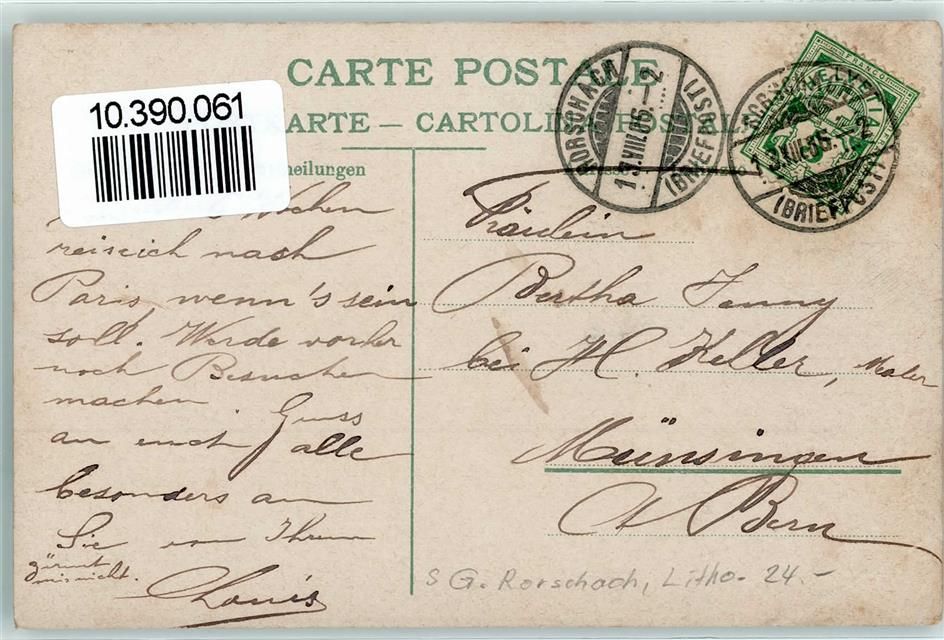 CARTE POSTALE
10.390.061
ARTE — CARTOLINA POSTALE
heilungen
RORSCHACH
13.VIII.06.–2
(BRIEFPOST)
RORSCHACH
13.VIII.06.–2
(BRIEFPOST)
FRANCO
HELVETIA
5
Wochen
reise ich nach
Paris, wenn's sein
soll. Werde vorher
noch Besuchen
machen. Gruss
an euch alle
besonders an
Sie von Ihrem
zürnt
mis nicht.
Louis
Fräulein
Bertha Jenny
bei H. Keller, Maler
Münsingen
Ct Bern
S G. Rorschach, Litho. 24.-